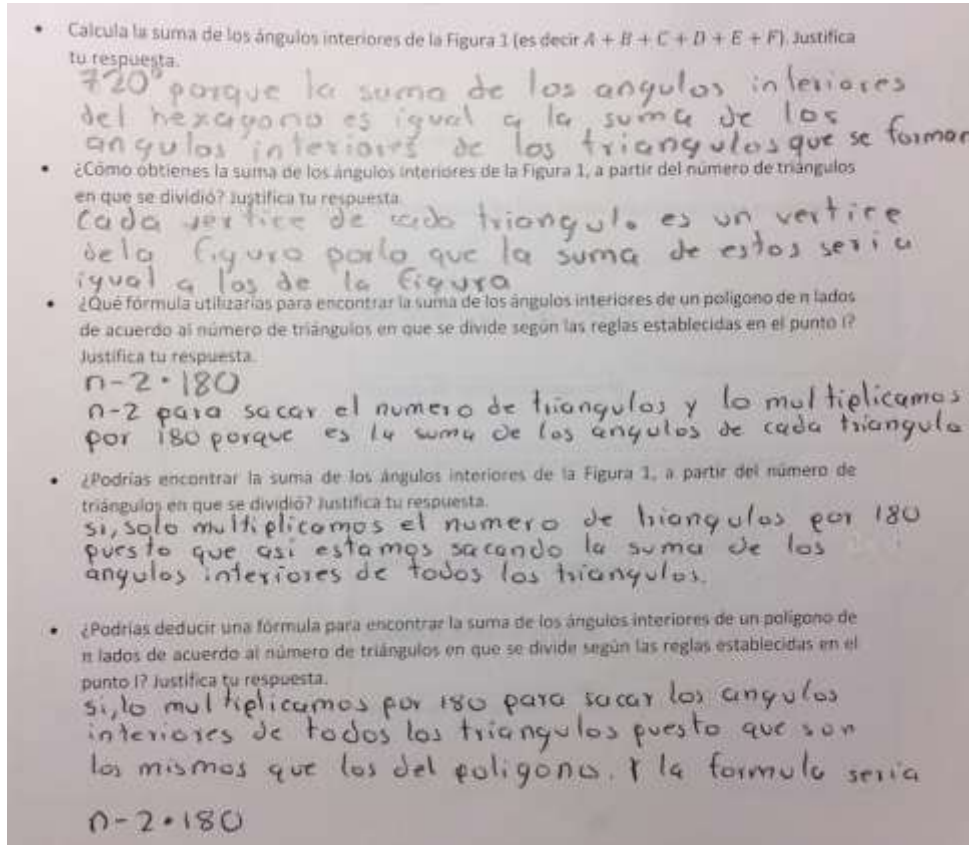 • Calcula la suma de los ángulos interiores de la Figura 1 (es decir A + B + C + D + E + F). Justifica
tu respuesta.
720° porque la suma de los angulos interiores
del hexagono es igual a la suma de los
angulos interiores de los triangulos que se forman
• ¿Cómo obtienes la suma de los ángulos interiores de la Figura 1, a partir del número de triángulos
en que se dividió? Justifica tu respuesta.
Cada vertice de cada triangulo es un vertice
dela figura porlo que la suma de estos seria
igual a los de la figura
• ¿Qué fórmula utilizarías para encontrar la suma de los ángulos interiores de un polígono de n lados
de acuerdo al número de triángulos en que se divide según las reglas establecidas en el punto I?
Justifica tu respuesta.
n-2•180
n-2 para sacar el numero de triangulos y lo multiplicamos
por 180 porque es la suma de los angulos de cada triangulo
• ¿Podrías encontrar la suma de los ángulos interiores de la Figura 1, a partir del número de
triángulos en que se dividió? Justifica tu respuesta.
si, solo multiplicamos el numero de triangulos por 180
puesto que asi estamos sacando la suma de los
angulos interiores de todos los triangulos.
• ¿Podrías deducir una fórmula para encontrar la suma de los ángulos interiores de un polígono de
n lados de acuerdo al número de triángulos en que se divide según las reglas establecidas en el
punto I? Justifica tu respuesta.
si, lo multiplicamos por 180 para sacar los angulos
interiores de todos los triangulos puesto que son
los mismos que los del poligono. Y la formula seria
n-2•180